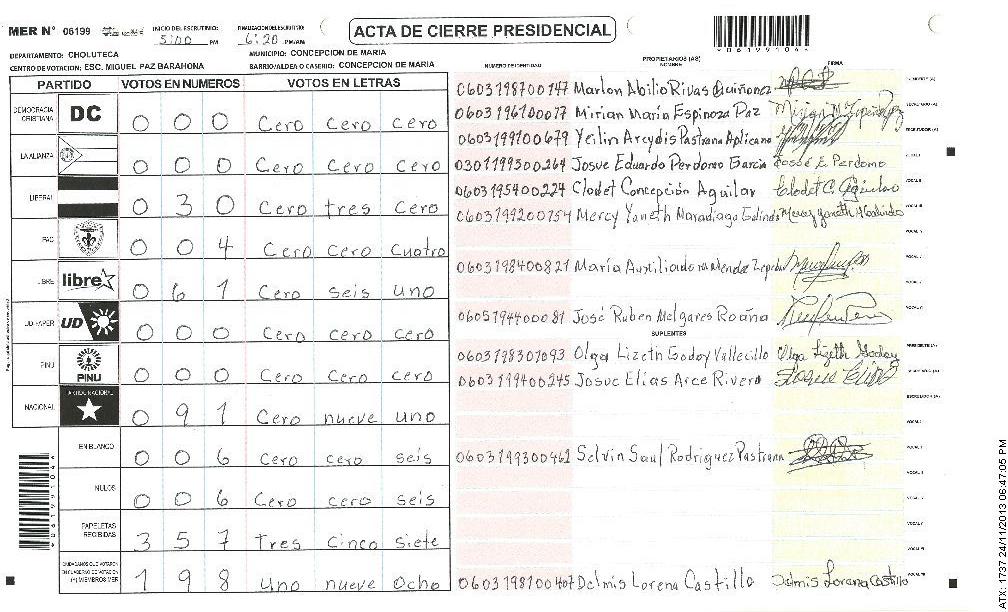 MER N° 06199
INICIO DEL ESCRUTINIO: 5:00 PM
FINALIZACION DEL ESCRUTINIO: 6:20 PM/AM
ACTA DE CIERRE PRESIDENCIAL
DEPARTAMENTO: CHOLUTECA
MUNICIPIO: CONCEPCION DE MARIA
CENTRO DE VOTACION: ESC. MIGUEL PAZ BARAHONA
BARRIO/ALDEA O CASERIO: CONCEPCION DE MARIA
PARTIDO VOTOS EN NUMEROS VOTOS EN LETRAS
NUMERO DE IDENTIDAD PROPIETARIOS (AS) NOMBRE FIRMA
DEMOCRACIA CRISTIANA DC 0 0 0 Cero Cero Cero
LA ALIANZA 0 0 0 Cero Cero Cero
LIBERAL 0 3 0 Cero tres Cero
PAC 0 0 4 Cero Cero Cuatro
LIBRE libre 0 6 1 Cero seis uno
UD FAPER UD 0 0 0 Cero Cero Cero
PINU PINU 0 0 0 Cero Cero Cero
NACIONAL PARTIDO NACIONAL 0 9 1 Cero nueve uno
EN BLANCO 0 0 6 Cero cero seis
NULOS 0 0 6 Cero cero seis
PAPELETAS RECIBIDAS 3 5 7 Tres Cinco siete
CIUDADANOS QUE VOTARON EN CUADERNO DE VOTACION (+) MIEMBROS MER 1 9 8 uno nueve ocho
0603198700147 Marlon Abilio Rivas Quiñonez
0603196100077 Mirian María Espinoza Paz
0603199100679 Yeilin Arcydis Pastrana Aplicano
0301199500264 Josue Eduardo Perdomo Garcia Josué E. Perdomo
0603195400224 Clodet Concepción Aguilar Clodet C. Aguilar
0603199200754 Mercy Yaneth Maradiaga Galindo
0603198400821 María Auxiliadora Mendez Zepeda
0605194400081 José Ruben Melgares Roaña
SUPLENTES
0603198307093 Olga Lizeth Godoy Vallecillo Olga Lizeth Godoy
0603199400245 Josue Elías Arce Rivera
0603199300461 Selvin Saul Rodriguez Pastrana
0603198100407 Delmis Lorena Castillo Delmis Lorena Castillo
ATX: 1737 24/11/2013 06:47:05 PM